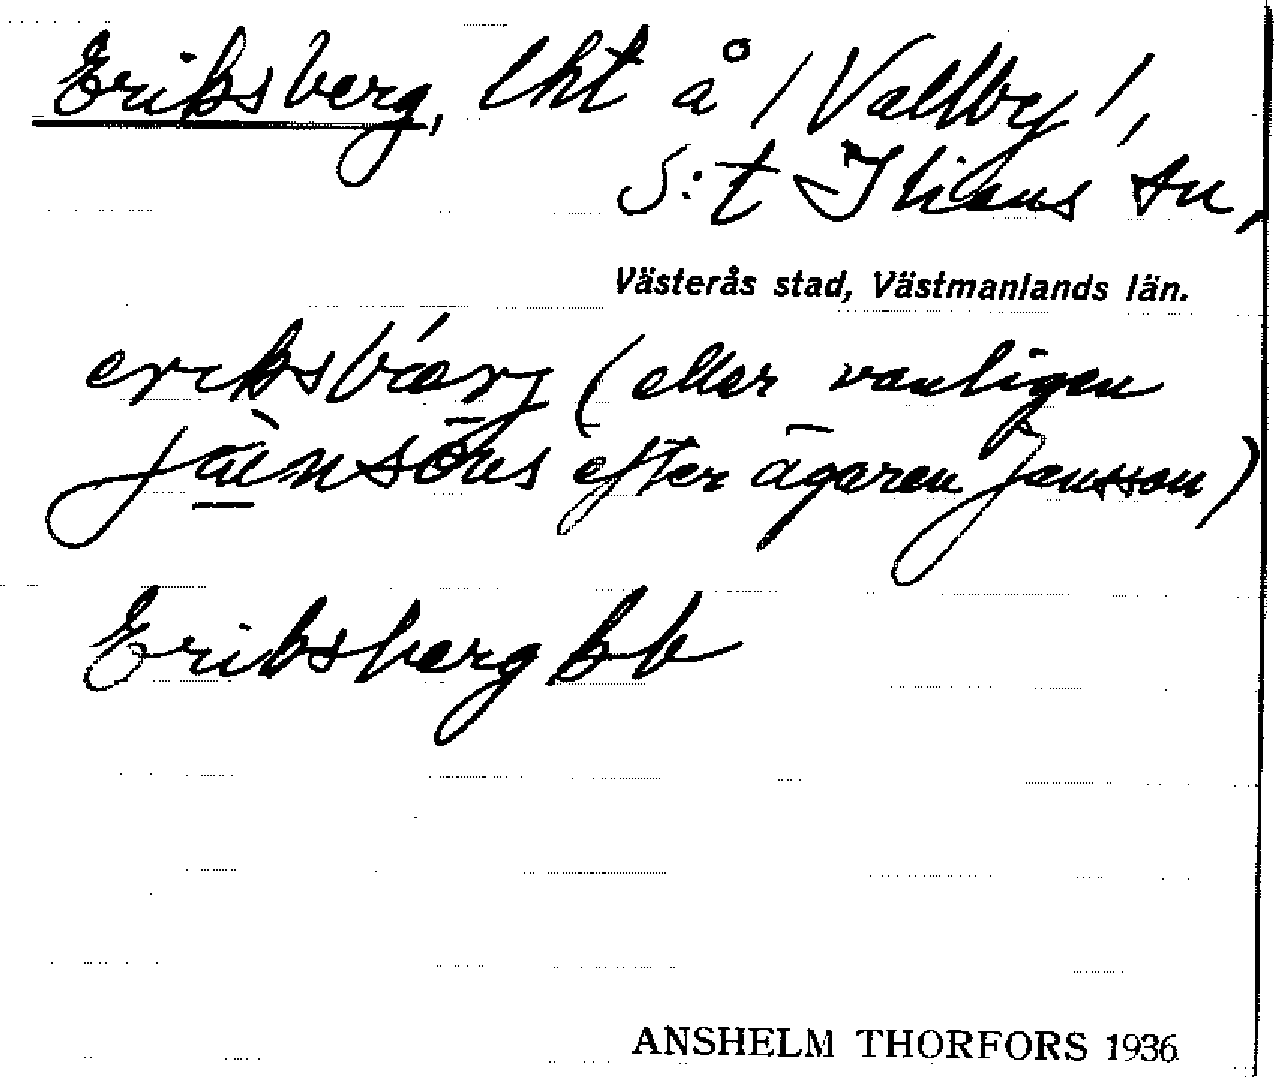 Eriksberg, lht å /Vallby/,
S:t Ilians sn,
Västerås stad, Västmanlands län.
eriksbærj (eller vanligen
jàensōns efter ägaren Jansson)
Eriksberg Ek
ANSHELM THORFORS 1936